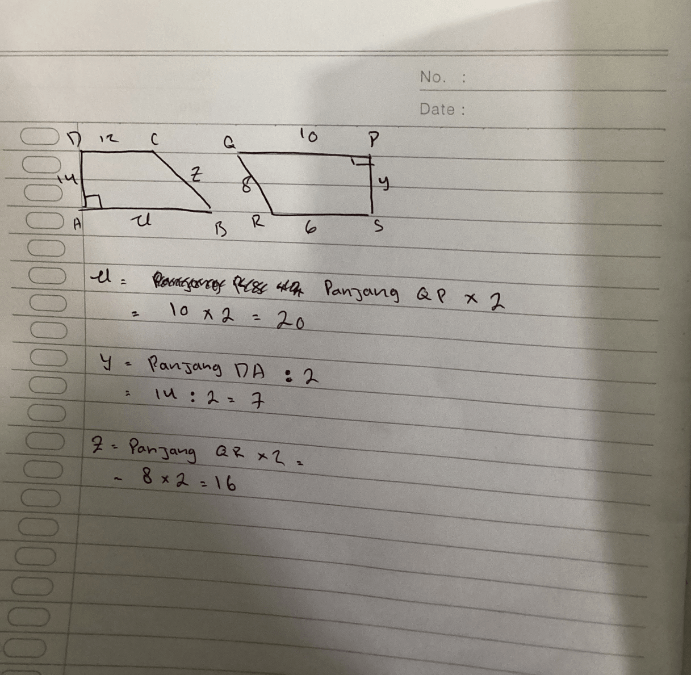 No. :
Date :
D 12 C Q 10 P
14 z 8 y
A x B R 6 S
x = Panjang QP × 2
= 10 × 2 = 20
y = Panjang DA : 2
= 14 : 2 = 7
z = Panjang QR × 2 =
~ 8 × 2 = 16